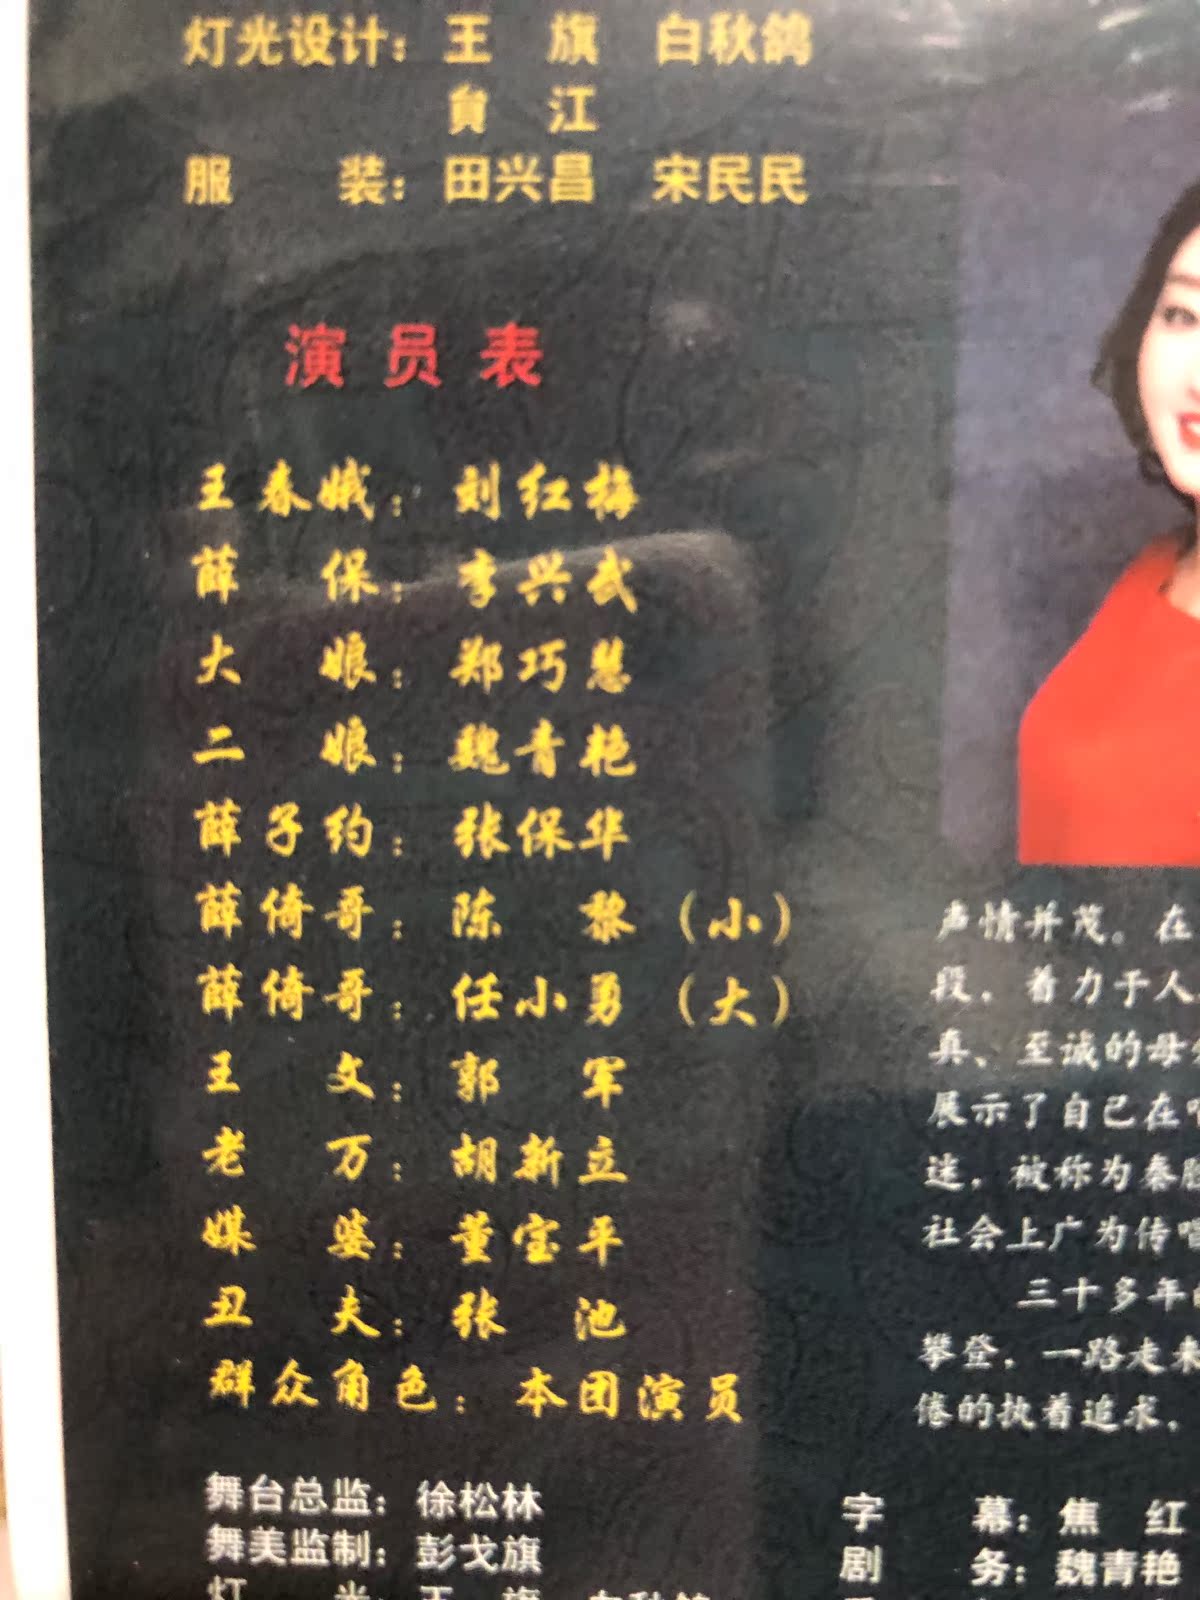 灯光设计：王　旗　白秋鸽
江
服　　装：田兴昌　宋民民
演员表
王春娥：刘红梅
薛　保：李兴武
大　娘：郑巧慧
二　娘：魏青艳
薛子约：张保华
薛倚哥：陈　黎（小）
薛倚哥：任小勇（大）
王　文：郭　军
老　万：胡新立
媒　婆：董宝平
丑　夫：张　池
群众角色：本团演员
舞台总监：徐松林
舞美监制：彭戈旗
灯　　光：王　旗　白秋鸽
声情并茂。在
段，着力于人
真、至诚的母
展示了自己在
迷，被称为秦
社会上广为传唱
三十多年
攀登，一路走来
倦的执着追求，
字　　幕：焦　红
剧　　务：魏青艳